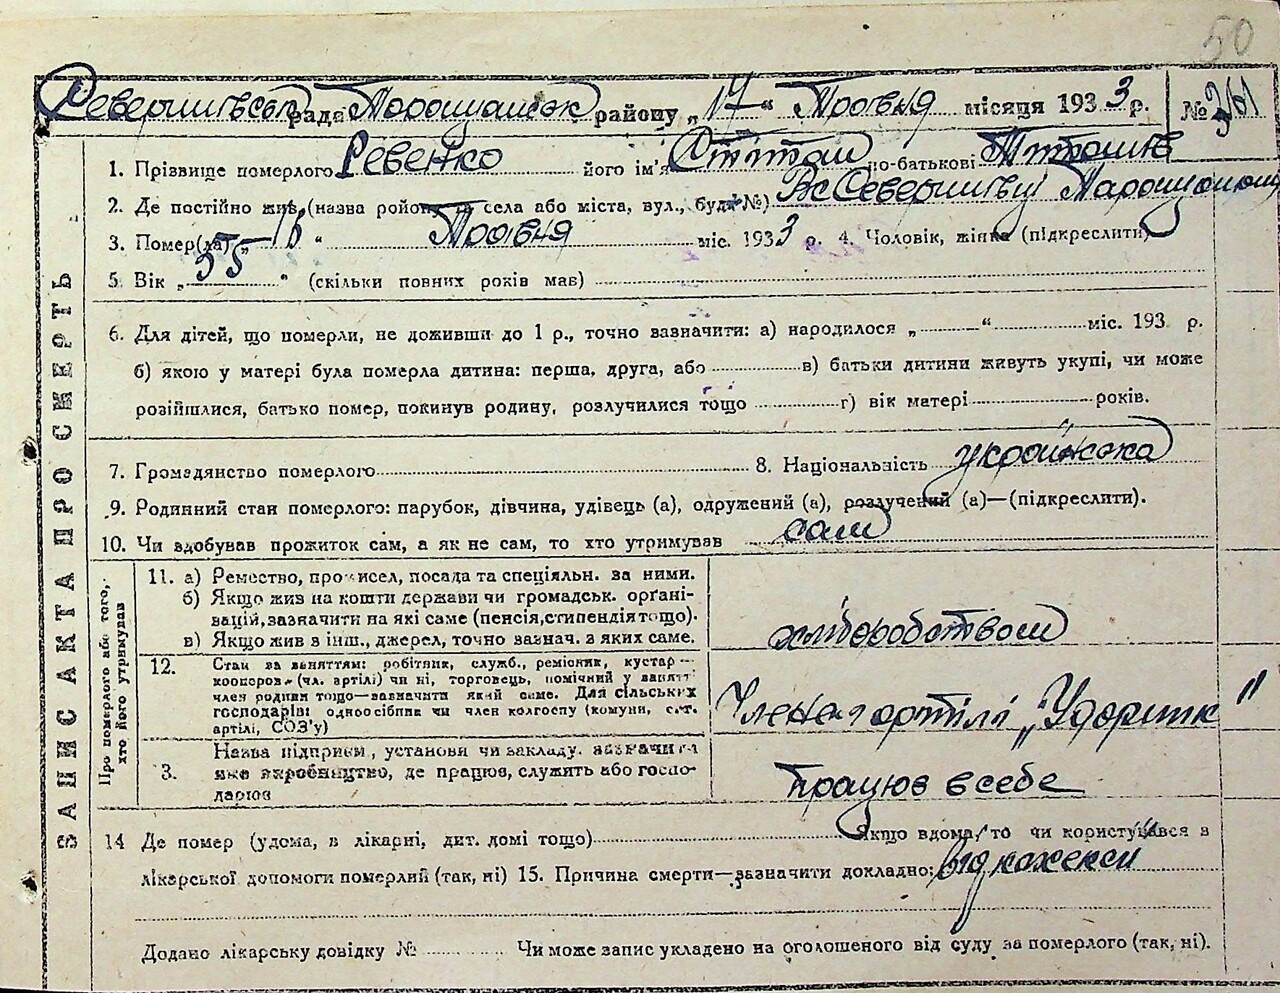 50
рада Торощанськ району „17“ Травня місяця 1933 р. №
1. Прізвище померлого Ревенко його ім'я Степан по-батькові
2. Де постійно жив (назва району та села або міста, вул., буд. №)
3. Помер(ла) „16“ Травня міс. 1933 р. 4. Чоловік, жінка (підкреслити)
5. Вік „55“ (скільки повних років мав)
6. Для дітей, що померли, не доживши до 1 р., точно вазначити: а) народилося „ “ міс. 193 р.
б) якою у матері була померла дитина: перша, друга, або в) батьки дитини живуть укупі, чи може
розійшлися, батько помер, покинув родину, розлучилися тощо г) вік матері років.
7. Громадянство померлого 8. Національність українська
9. Родинний стан померлого: парубок, дівчина, удівець (а), одружений (а), розлучений (а)—(підкреслити).
10. Чи здобував прожиток сам, а як не сам, то хто утримував сам
ЗАПИС АКТА ПРО СМЕРТЬ
Про померлого або того,
хто його утримував
11. а) Ремество, промисел, посада та спеціяльн. за ними.
б) Якщо жив на кошти держави чи громадськ. органі-
вацій, зазначити на які саме (пенсія, стипендія тощо).
в) Якщо жив з інш., джерел, точно зазнач. з яких саме.
хліборобством
12. Стан за заняттям: робітник, служб., ремісник, кустар—
кооперов. (чл. артілі) чи ні, торговець, помічний у занятт
член родини тощо—зазначити який саме. Для сільських
господарів: одноосібник чи член колгоспу (комуни, с.-г.
артілі, СОЗ'у)
Член артілі „Ударник"
3. Назва підприєм, установи чи закладу. зазначити
яке виробництво, де працює, служить або госпо-
дарює
працює в себе
14 Де помер (удома, в лікарні, дит. домі тощо) Якщо вдома, то чи користувався з
лікарської допомоги померлий (так, ні) 15. Причина смерти—зазначити докладно: від кахексії
Додано лікарську довідку № Чи може запис укладено на оголошеного від суду за померлого (так, ні).